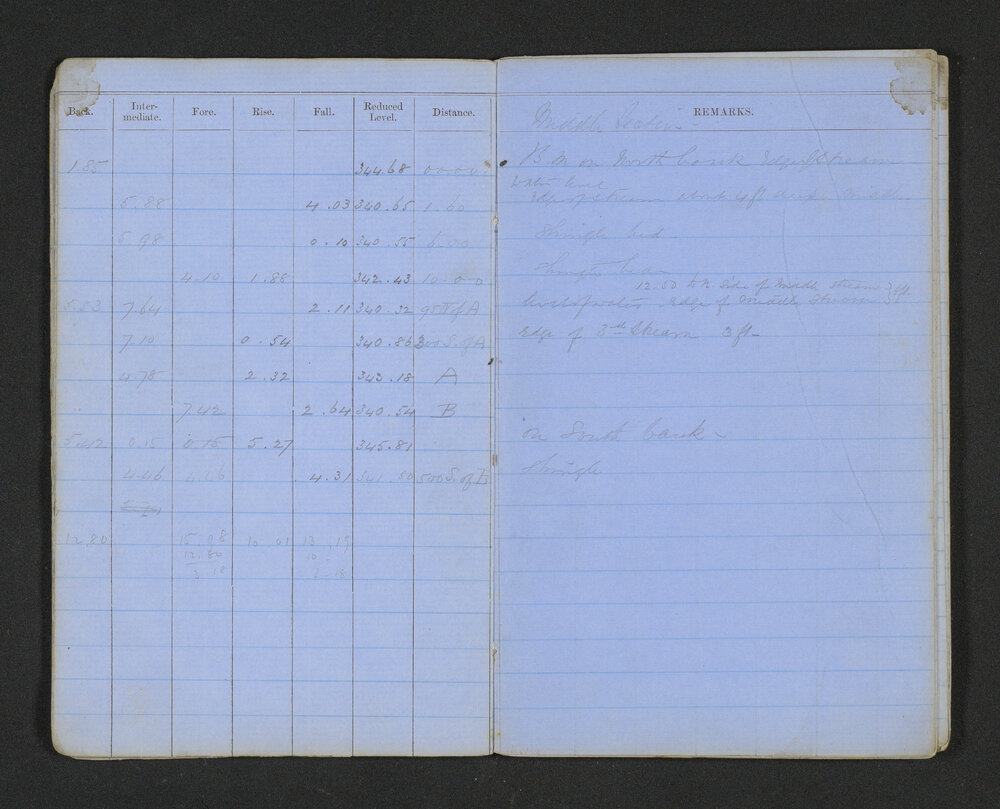 Back. Inter-mediate. Fore. Rise. Fall. Reduced Level. Distance. REMARKS.
Middle Section -
1.85 344.68 00.00 B.M on North bank Edge of Stream
Water level
5.88 4.03 340.65 1.60 Edge of stream about 4ft deep middle
5.98 0.10 340.55 6.00 Shingle bed
4.10 1.88 342.43 10.00 Shingle
12.50 to R. side of Middle stream 3ft
5.53 7.64 2.11 340.32 of A level of water, Edge of Middle Stream
7.10 0.54 340.86 300 S. of A Edge of 3rd Stream 3ft-
4.78 2.32 343.18 A
7.42 2.64 340.54 B
5.42 0.15 0.15 5.27 345.81 on South bank -
4.46 4.46 4.31 341.50 500 S. of B Shingle
12.80 15.98 10.01 13.19
12.80 10
3 18 3.18